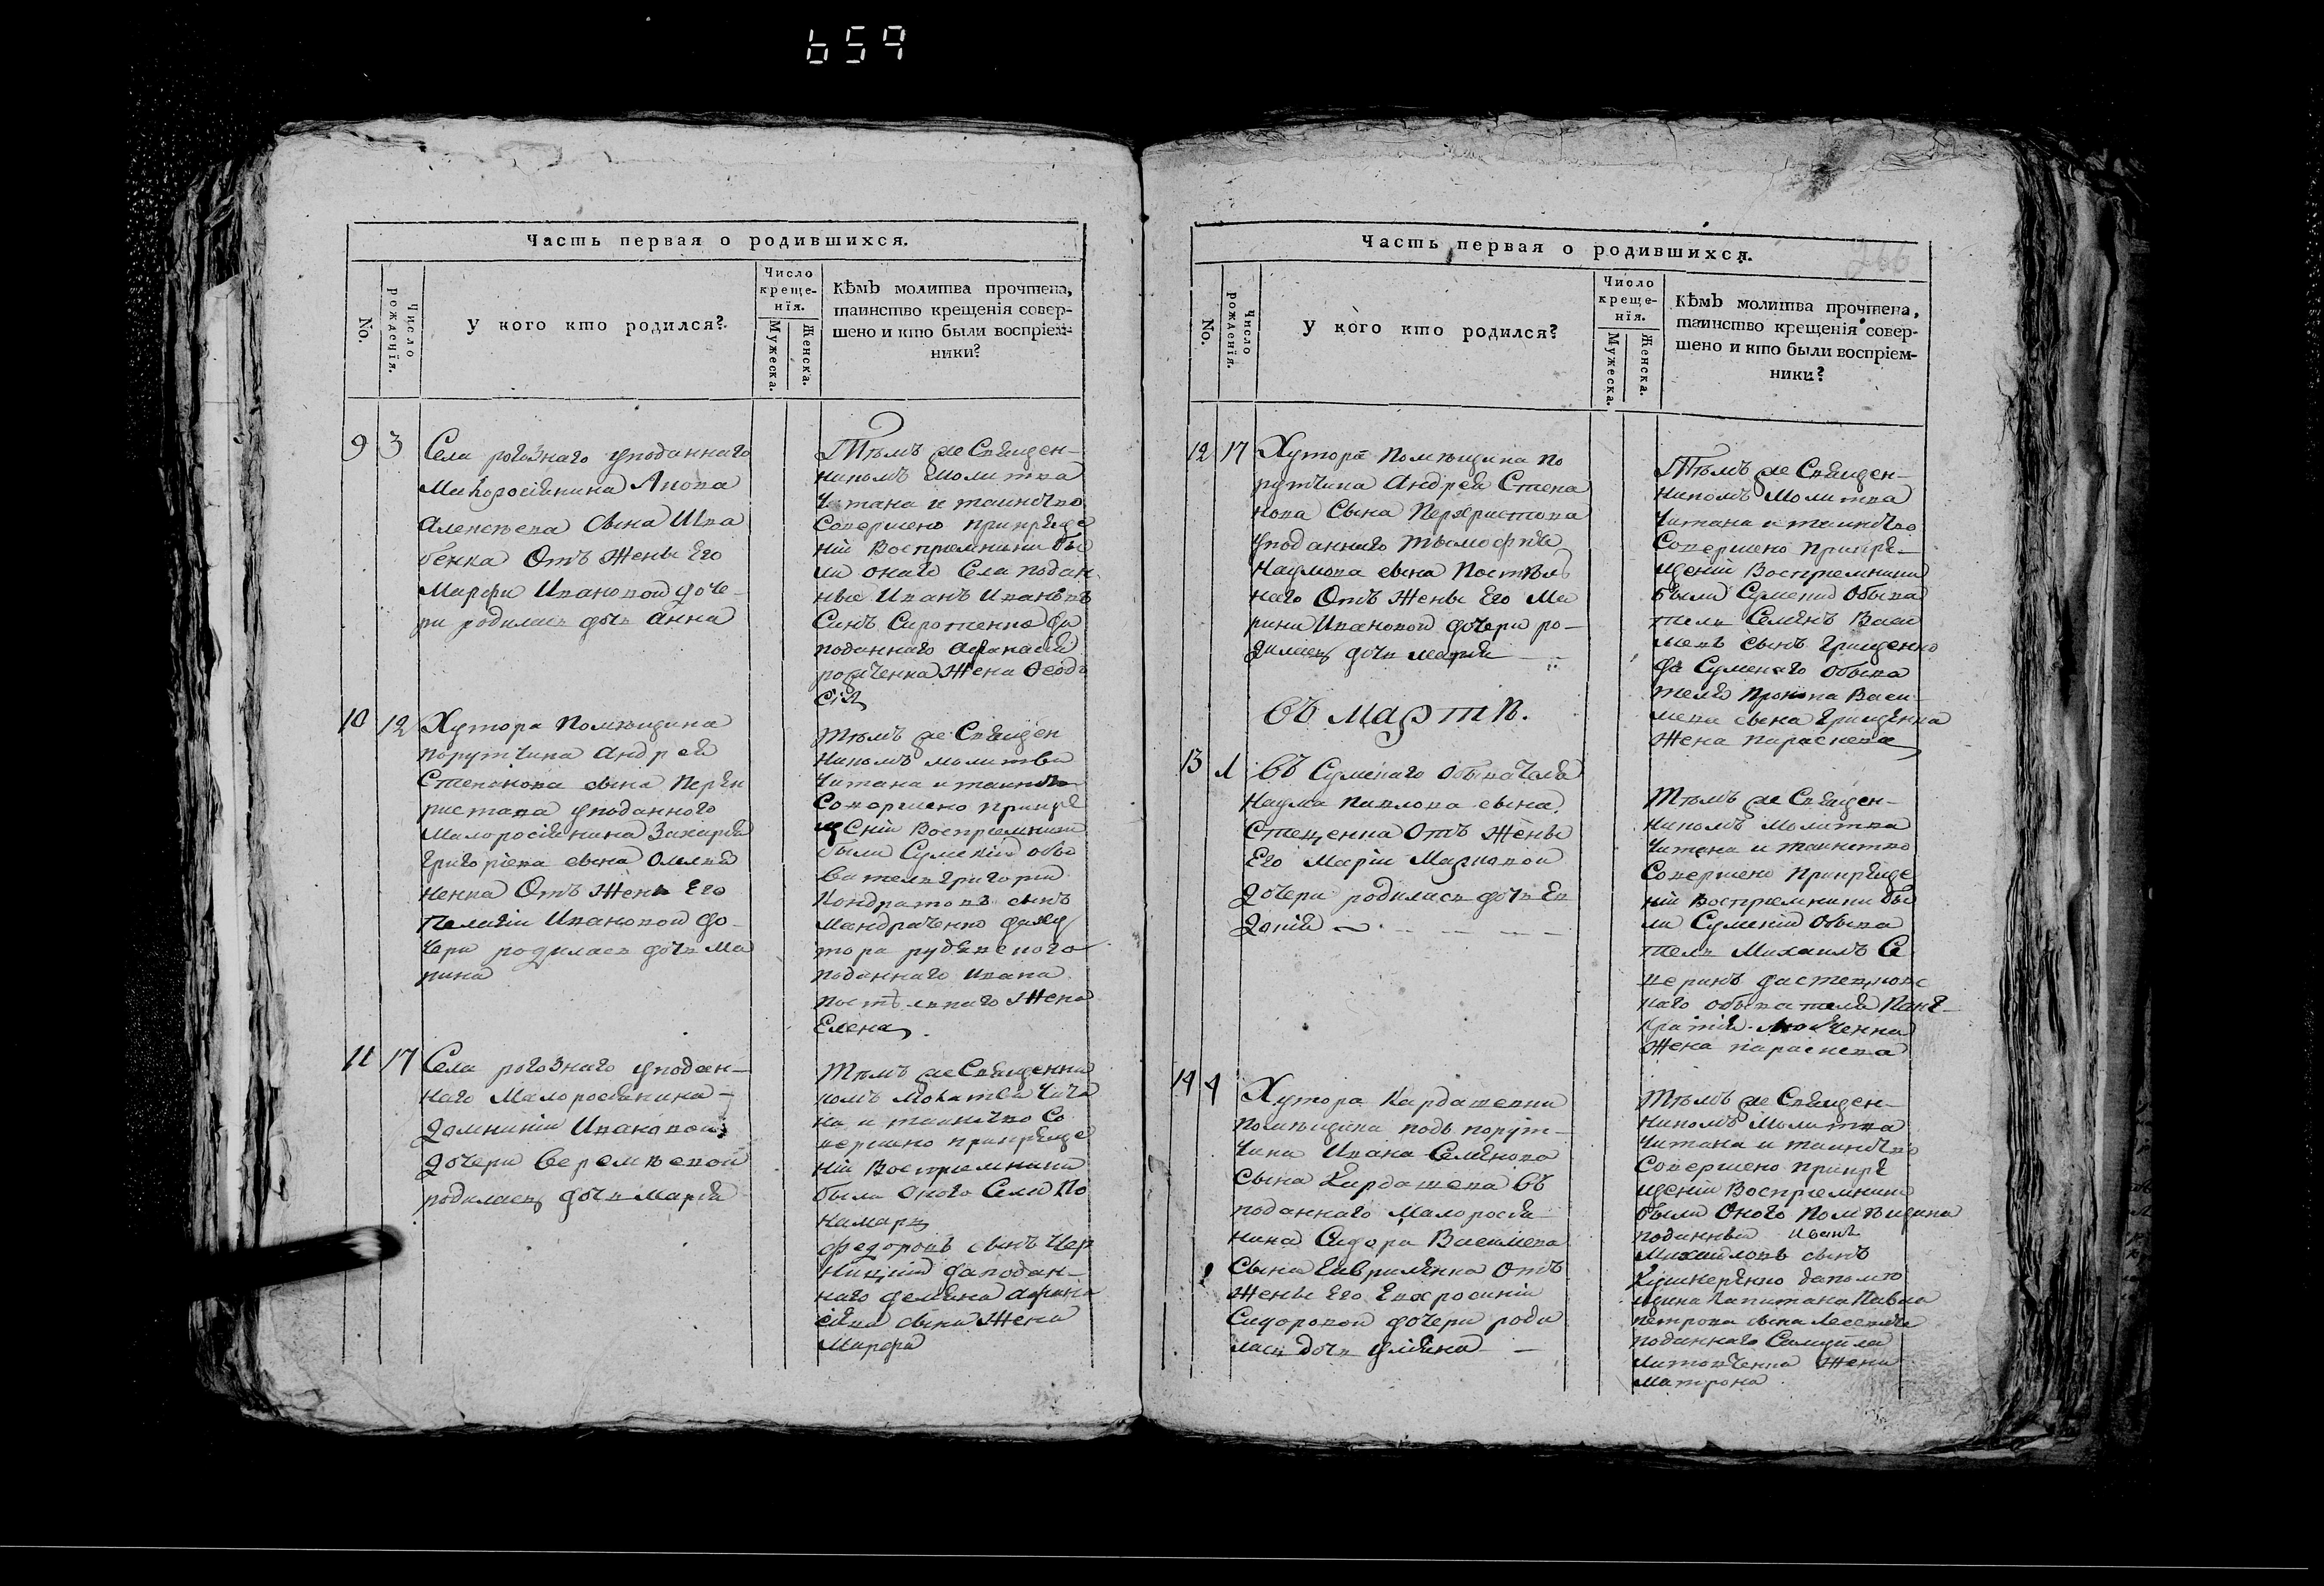 659
Часть первая о родившихся.
No.
Число рожденія.
У кого кто родился?
Число
креще-
нія.
Мужеска.
Женска.
Кѣмъ молитва прочтена,
таинство крещенія совер-
шено и кто были воспріем-
ники?
9 3
Села рогознаго уподаннаго
Алексѣева сына Ива
бенка Отъ Жены Его
Марфы Ивановой доче-
ри родилась дочь Анна
Тѣмъ же Священ-
никомъ Молитва
Читана и таинство
Совершено прикреще
ніи Восприемники бы
ли онаго Села подан-
ные Иванъ Ивановъ
Сынъ Сиротенко да
поданнаго Афанасія
Жена Феодо
сія
10 12
Хутора Помѣщика
Порутчика Андрея
Степанова сына Перек
рестова уподанного
Малоросіянина Захарія
Григоріева сына Олехв
ненка Отъ Жены Его
Пелагіи Ивановой до-
чери родилась дочь Ма
рина
Тѣмъ же Священ
никомъ молитва
Читана и таинство
Совершено прикре
щеніи Восприемники
были Сумскій обы
ватель Григорій
Кондратовъ сынъ
Мандраченко даху
тора рудевского
поданнаго Ивана
Жена
Елена
11 17
Села рогознаго уподан-
наго Малоросіянина-
Домникіи Ивановой
Дочери Веремѣевой
родилась дочь Марія
Тѣмъ же Священни
комъ Молитва Чита
на и таинство Со
вершено прикреще
ніи Восприемники
были Оного Села По
намарь
Федоровъ сынъ Чер
ницкій даподан-
наго демяна Афана
сіева сына Жена
Марфа
Часть первая о родившихся.
No.
Число рожденія.
У кого кто родился?
Число
креще-
нія.
Мужеска.
Женска.
Кѣмъ молитва прочтена,
таинство крещенія совер-
шено и кто были воспріем-
ники?
12 17
Хутора Помѣщика По
рутчика Андрея Степа
нова Сына Перекрестова
уподаннаго Тимофѣя
Наумова сына Постѣль
наго Отъ Жены Его Ма
рины Ивановой дочери ро-
дилась дочь Марія
Тѣмъ же Священ-
никомъ Молитва
Читана и таинство
Совершено прикре-
щеніи Восприемники
были Сумскій Обыва
тель Семенъ Васи
льевъ сынъ Грищенко
да Сумскаго Обыва
теля Прокопа Васи
льева сына Грищенка
Жена параскева
Въ Мартѣ.
13 1
Въ Сумскаго Обывателя
Наума Павлова сына
Стеценка Отъ Жены
Его Маріи Марковой
Дочери родилась дочь Ев
докія
Тѣмъ же Священ-
никомъ Молитва
Читана и таинство
Совершено Прикреще
ніи Восприемники бы
ли Сумскій Обыва
тель Михаилъ Се
наго обывателя Панк-
ратія
Жена параскева
14 4
Хутора Кардашевки
Помѣщика подъ порут-
чика Ивана Семенова
Сына Кардашева Въ
поданнаго Малоросія
нина Сидора Васильева
Сына Гавриленка Отъ
Жены Его Евфросиніи
Сидоровой дочери роди
лась дочь уліяна
Тѣмъ же Священ-
никомъ Молитва
Читана и таинство
Совершено Прикре
щеніи Восприемники
были Оного Помѣщика
поданный Иванъ
Михайловъ сынъ
Кушнеренко дапомѣ
щика Капитана Павла
Петрова сына
поданнаго Самуйла
Литовченка Жена
Матрона